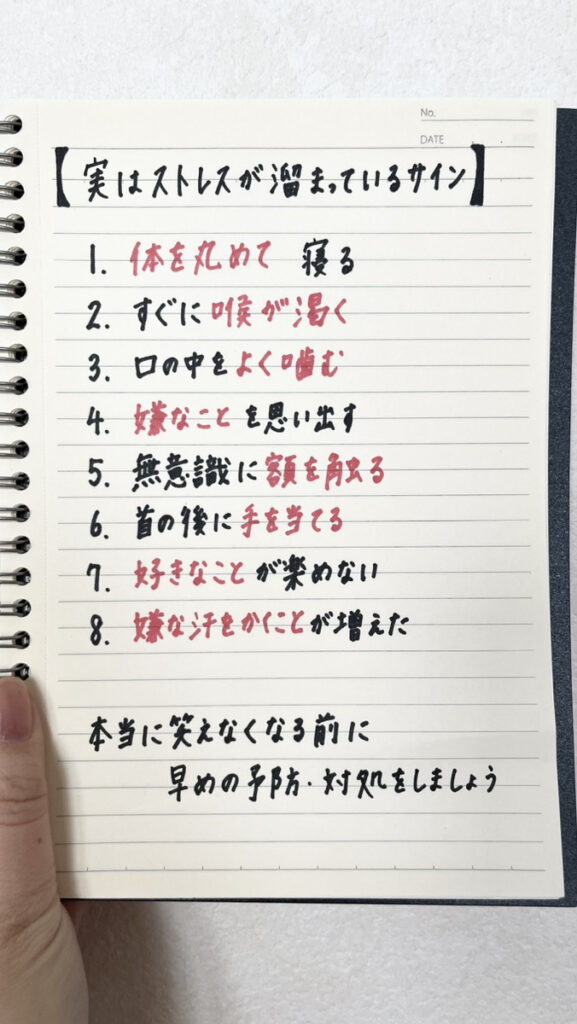 No.
DATE
【実はストレスが溜まっているサイン】
1. 体を丸めて 寝る
2. すぐに喉が渇く
3. 口の中をよく噛む
4. 嫌なことを思い出す
5. 無意識に額を触る
6. 首の後に手を当てる
7. 好きなことが楽めない
8. 嫌な汗をかくことが増えた
本当に笑えなくなる前に
早めの予防・対処をしましょう